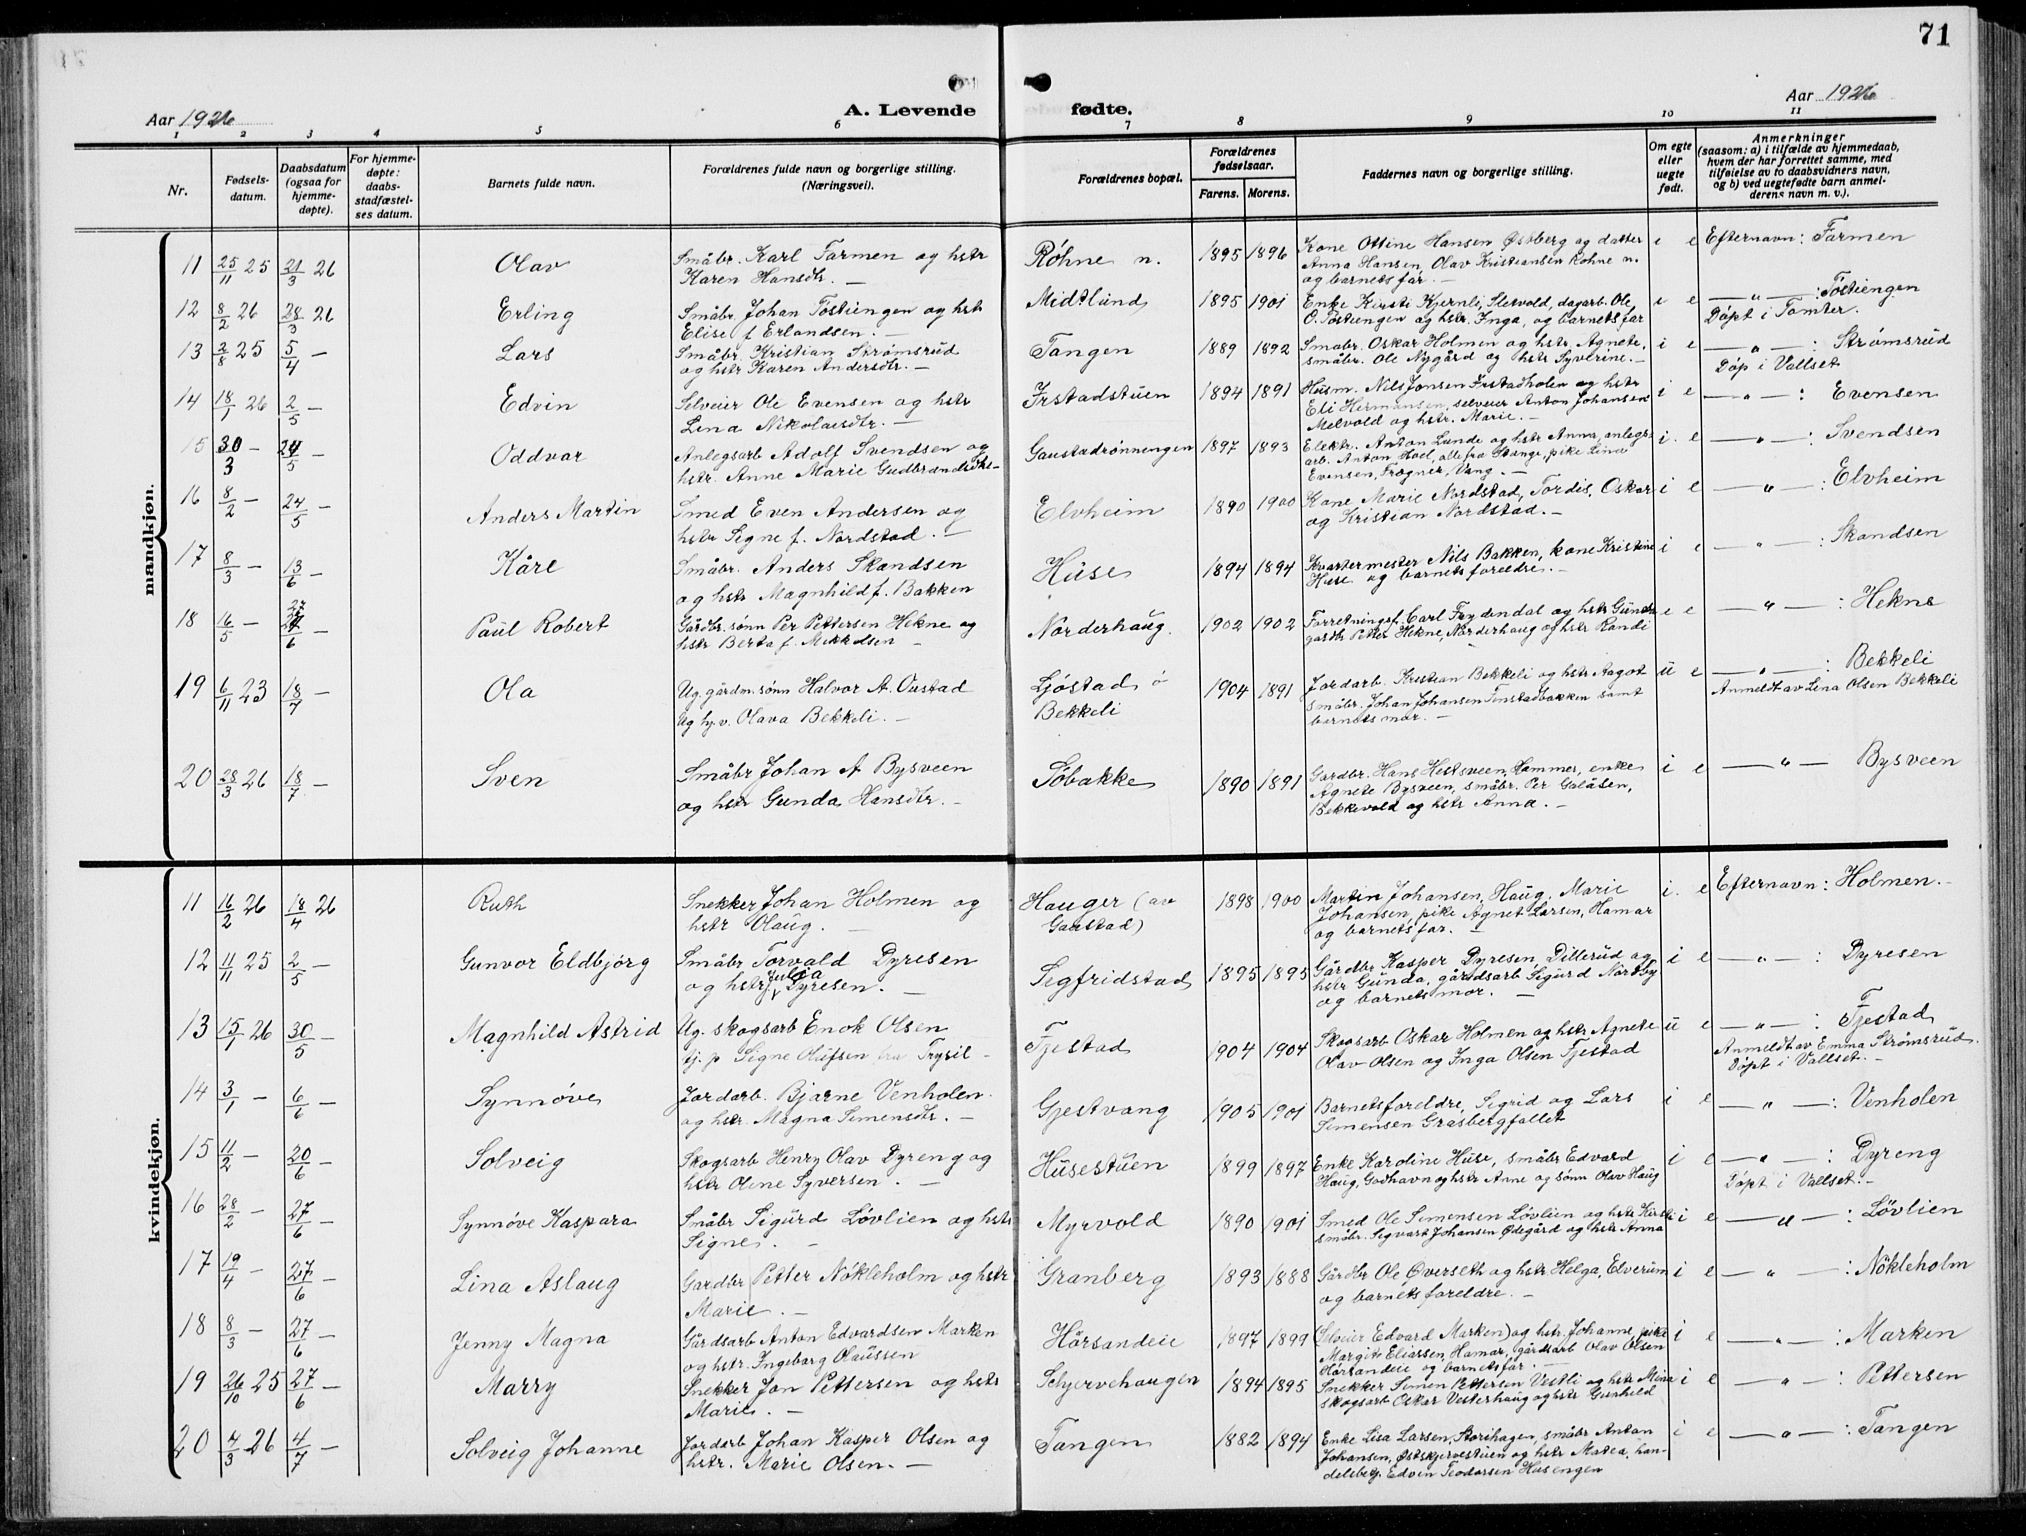 71
Aar 1926
A. Levende fødte.
Aar 1926
1 2 3 4 5 6 7 8 9 10 11
Nr.
Fødselsdatum.
Daabsdatum (ogsaa for hjemmedøpte).
For hjemmedøpte: daabsstadfæstelses datum.
Barnets fulde navn.
Forældrenes fulde navn og borgerlige stilling. (Næringsvei).
Forældrenes bopæl.
Forældrenes fødselsaar.
Farens. Morens.
Faddernes navn og borgerlige stilling.
Om egte eller uegte født.
Anmerkninger (saasom: a) i tilfælde av hjemmedaab, hvem der har forrettet samme, med tilføielse av to daabsvidners navn, og b) ved uegtefødte barn anmelderens navn m. v.).
mandkjøn.
11 25/11 25 21/3 26 Olav Småbr. Karl Farmen og hstr Røhne n. 1895 1896 Kone Ottine Hansen Østberg og datter i e Efternavn: Farmen
Karen Hansdtr. — Anna Hansen, Olav Kristiansen Røhne n.
og barnets far. —
12 8/2 26 28/3 26 Erling Småbr. Johan Tostiengen og hstr Midtlund 1895 1901 Enke Kirsti Kjernli, Sletvold, dagarb. Ole i e — " — : Tostiengen
Elise f. Erlandsen. — O. Tostiengen og hstr. Inga, og barnets far Døpt i Tomter.
13 2/8 25 5/4 — Lars Småbr. Kristian Strømsrud Tangen 1889 1892 Småbr. Oskar Holmen og hstr. Agnete, i e — " — : Strømsrud
og hstr Karen Andersdtr. — småbr. Ole Nygård og hstr Syverine. — Døp i Vallset
14 18/1 26 2/5 — Edvin Selveier Ole Evensen og hstr Irstadstuen 1894 1891 Husm. Nils Jonsen Frstadholen og hstr i e — " — : Evensen
Lena Nikolaisdtr. — Eli Hermansen, selveier Anton Johansen
Melvold og hstr. Marie. —
15 30/3 — 24/5 — Oddvar Anlegsarb Adolf Svendsen og Gaustadrønningen 1897 1893 Elektr. Anton Lunde og hstr Anna, anlegs- i. e — " — : Svendsen
hstr. Anne Marie Gudbrandsdtr. — arb. Anton Hoel, alle fra Stange, pike Lina
Evensen, Frogner, Vang. —
16 8/2 — 24/5 — Anders Martin Smed Even Andersen og Elvheim 1890 1900 Kone Marie Nordstad, Tordis, Oskar i e — " — : Elvheim
hstr Signe f. Nordstad. — og Kristian Nordstad. —
17 8/3 — 13/6 — Kåre Småbr. Anders Skandsen Huse 1894 1894 Kvartermester Nils Bakken, kone Kristine i e — " — : Skandsen
og hstr Magnhild f. Bakken Huse og barnets foreldre. —
18 16/5 — 27/6 — Paul Robert Gårdbr. sønn Per Pettersen Hekne og Norderhaug. 1902 1902 Forretningsf. Carl Frydendal og hstr Gunda e e — " — : Hekne
hstr Berta f. Mikkelsen — gardb Petter Hekne, Norderhaug og hstr Randi
19 6/11 23 18/7 — Ola Ug. gårdm. sønn Halvor A. Oustad Ljøstad ö 1904 1891 Jordarb. Kristian Bekkeli og hstr Aagot u e — " — : Bekkeli
Ug hj.v. Olava Bekkeli. — Bekkeli småbr. Johan Johansen Finstadbakken samt Anmeldt av Lina Olsen Bekkeli
barnets mor. —
20 28/3 26 18/7 — Sven Småbr Johan A Bysveen Søbakke 1890 1891 Gardbr. Hans Hestsveen, Hammer, enke i e — " — Bysveen
og hstr Gunda Hansdtr. — Agnete Bysveen, småbr. Per Galåsen,
Bekkevold og hstr Anna. —
kvindekjøn.
11 16/2 26 18/4 26 Ruth Snekker Johan Holmen og Hauger (av 1898 1900 Martin Johansen, Haug, Marie i. e Efternavn: Holmen. —
hstr Olaug. — Gaustad) Johansen, pike Agnet Larsen, Hamar
og barnets far. —
12 11/11 25 2/5 — Gunvor Eldbjørg Småbr Torvald Dyresen Segfridstad 1895 1895 Gårdbr Kasper Dyresen, Dillerud og i e — " — : Dyresen
og hstr Julia Dyresen. — hstr Gunda, gårdsarb Sigurd Nordby
og barnets mor. —
13 15/1 26 30/5 — Magnhild Astrid Ug. skogsarb Enok Olsen Fjestad 1904 1904 Skogsarb Oskar Holmen og hstr Agnete u e — " — : Fjestad
tj. p Signe Olufsen fra Trysil — Olav Olsen og Inga Olsen Fjestad Anmeldt av Emma Strømsrud.
Døpt i Vallset. —
14 3/1 — 6/6 — Synnøve Jordarb. Bjarne Venholen. Gjestvang 1905 1901 Barnets foreldre, Sigrid og Lars i e — " — : Venholen
og hstr. Magna Simensdtr. — Simensen Grasbergfallet
15 11/2 — 20/6 — Solveig Skogsarb Henry Olav Dyreng og Husestuen 1899 1897 Enke Karoline Huse, småbr Edvard i e — " — : Dyreng
hstr Olene Syversen. — Haug, Godhavn og hstr Anne og sønn Olav Haug Døpt i Vallset. —
16 28/2 — 27/6 — Synnøve Kaspara Småbr Sigurd Løvlien og hstr Myrvold 1890 1901 Smed Ole Simensen Løvlien og hstr Kirsti i e — " — : Løvlien
Signe. — småbr. Sigvart Johansen Ødegård og hstr Anna
17 19/4 — 27/6 — Lina Aslaug Gardbr Petter Nøkleholm og hstr Granberg 1893 1888 Gårdbr Ole Øverseth og hstr Helga, Elverum i e — " — : Nøkleholm
Marie. — og barnets foreldre. —
18 8/3 — 27/6 — Jenny Magna Gårdsarb Anton Edvardsen Marken Hørsandeie 1897 1899 Selveier Edvard Marken) og hstr. Johanne, pike i e — " — : Marken
og hstr. Ingeborg Olaussen Margit Eliassen, Hamar, gårdsarb Olav Olsen
Hørsandeie og barnets far. —
19 26/10 25 27/6 — Marry Snekker Jon Pettersen og hstr Schjervehaugen 1894 1895 Snekker Simen Pettersen Vestli og hstr Mina i e — " — : Pettersen
Marie. — skogsarb Oskar Vesterhaug og hstr Gunhild
20 4/3 26 4/7 — Solveig Johanne Jordarb Johan Kasper Olsen og Tangen 1882 1894 Enke Lisa Larsen, Storihagen, småbr Anton i e — " — : Tangen
hstr. Marie Olsen. — Johansen, Østskjervestuen og hstr Matea, han-
delsbetj. Edvin Teodorsen Husengen